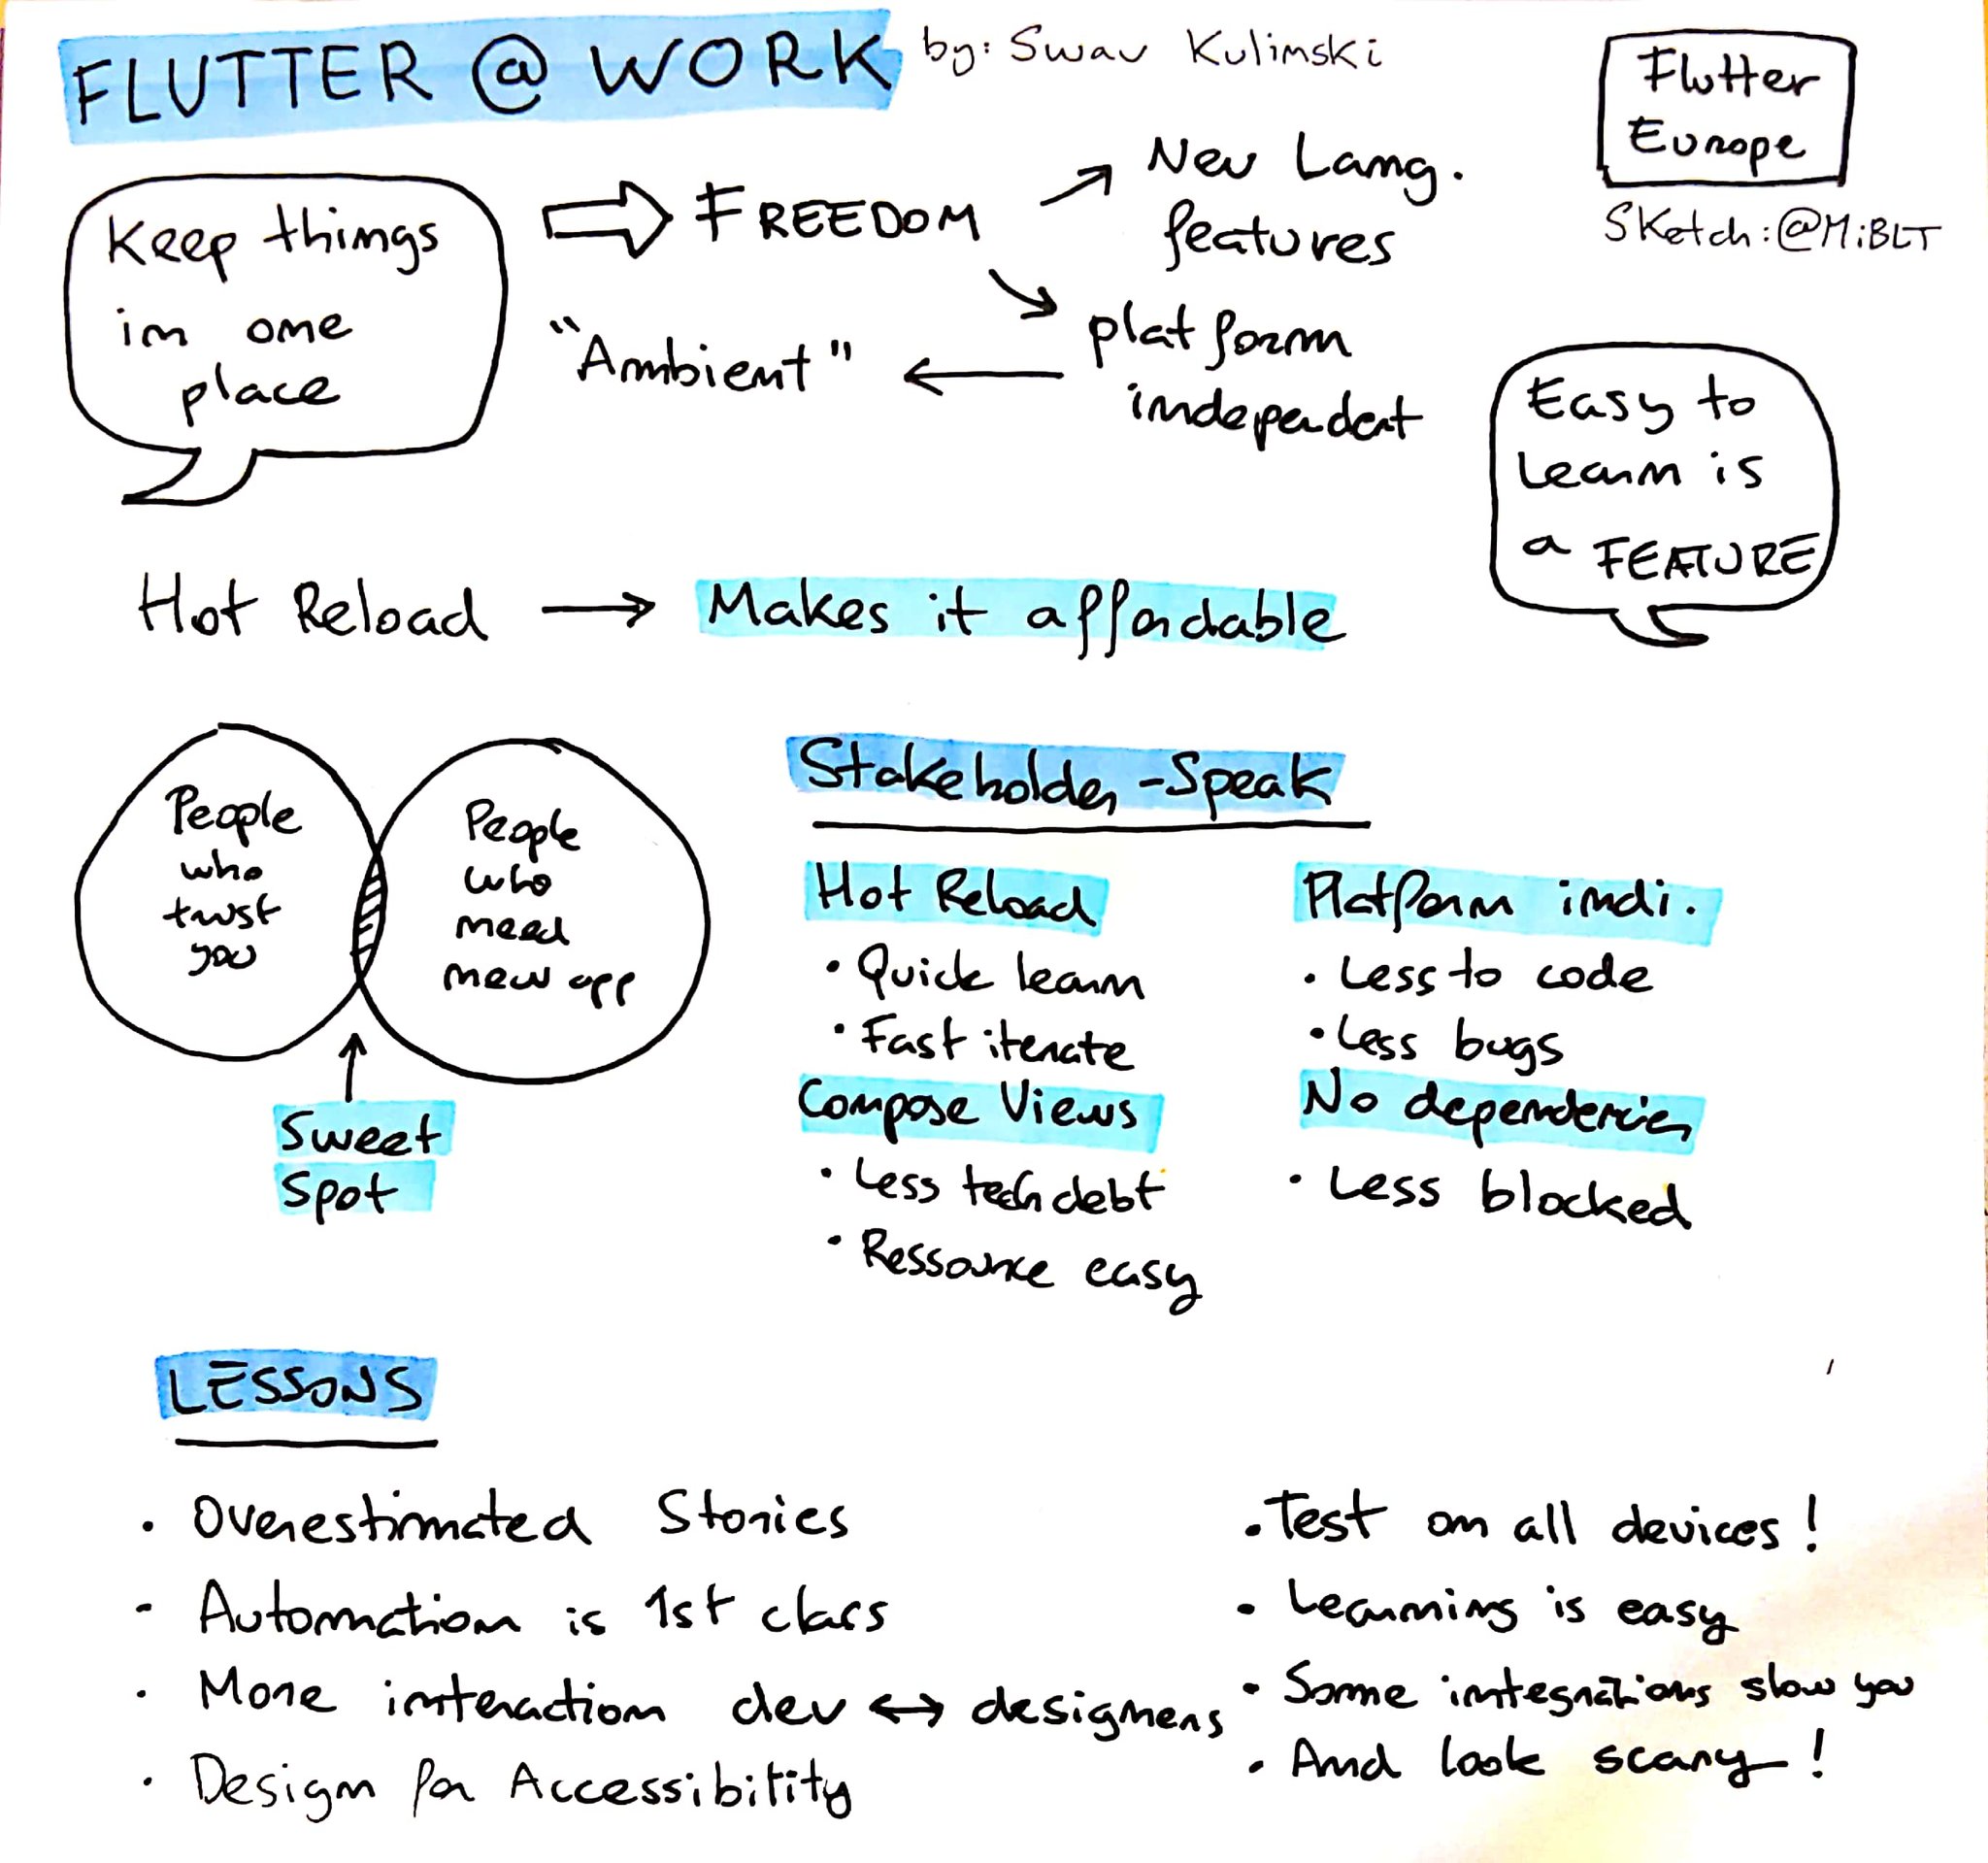 FLUTTER @ WORK by: Swav Kulinski
Flutter
Europe
Sketch: @MiBLT
Keep things
in one
place
FREEDOM
New Lang.
features
"Ambient"
platform
independent
Easy to
learn is
a FEATURE
Hot Reload → Makes it affordable
People
who
trust
you
People
who
need
new app
Sweet
Spot
Stakeholder-Speak
Hot Reload
• Quick learn
• Fast iterate
Compose Views
• Less tech debt
• Ressource easy
Platform indi.
• Less to code
• Less bugs
No dependencies
• Less blocked
LESSONS
• Overestimated Stories
- Automation is 1st class
• More interaction dev ↔ designers
• Design for Accessibility
• Test on all devices!
• Learning is easy
• Some integrations slow you
• And look scary!